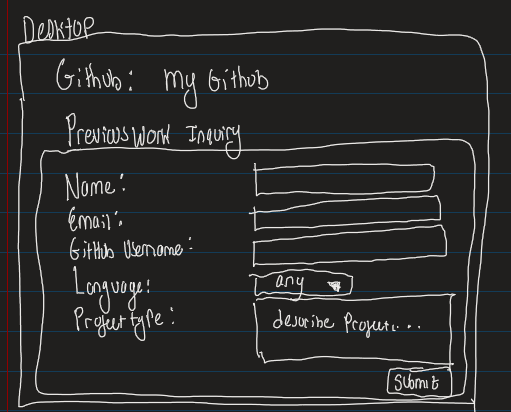 Desktop
Github: My Github
Previous Work Inquiry
Name:
Email:
GitHub Username:
Language: any
Project type: describe Project...
Submit